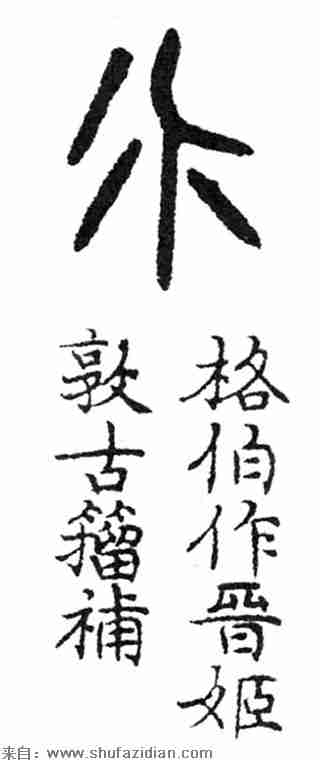 格伯作晋姬
敦古籒補
来自：www.shufazidian.com